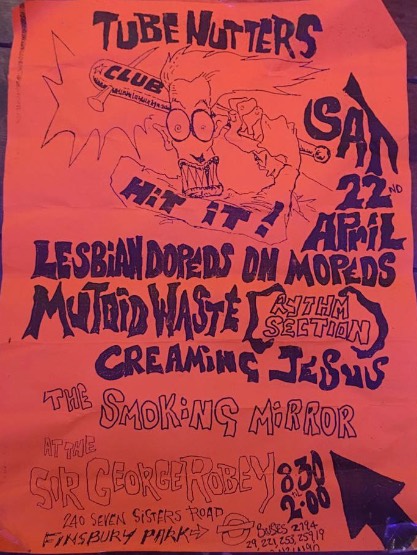 TUBE NUTTERS
CLUB
HIT IT!
SAT
22ND
APRIL
LESBIAN DOPEDS ON MOPEDS
MUTOID WASTE [RYTHM SECTION]
CREAMING JESUS
THE SMOKING MIRROR
AT THE
SIR GEORGE ROBEY
8.30
TIL
2.00
240 SEVEN SISTERS ROAD
FINSBURY PARK
BUSES
29 221 253 259